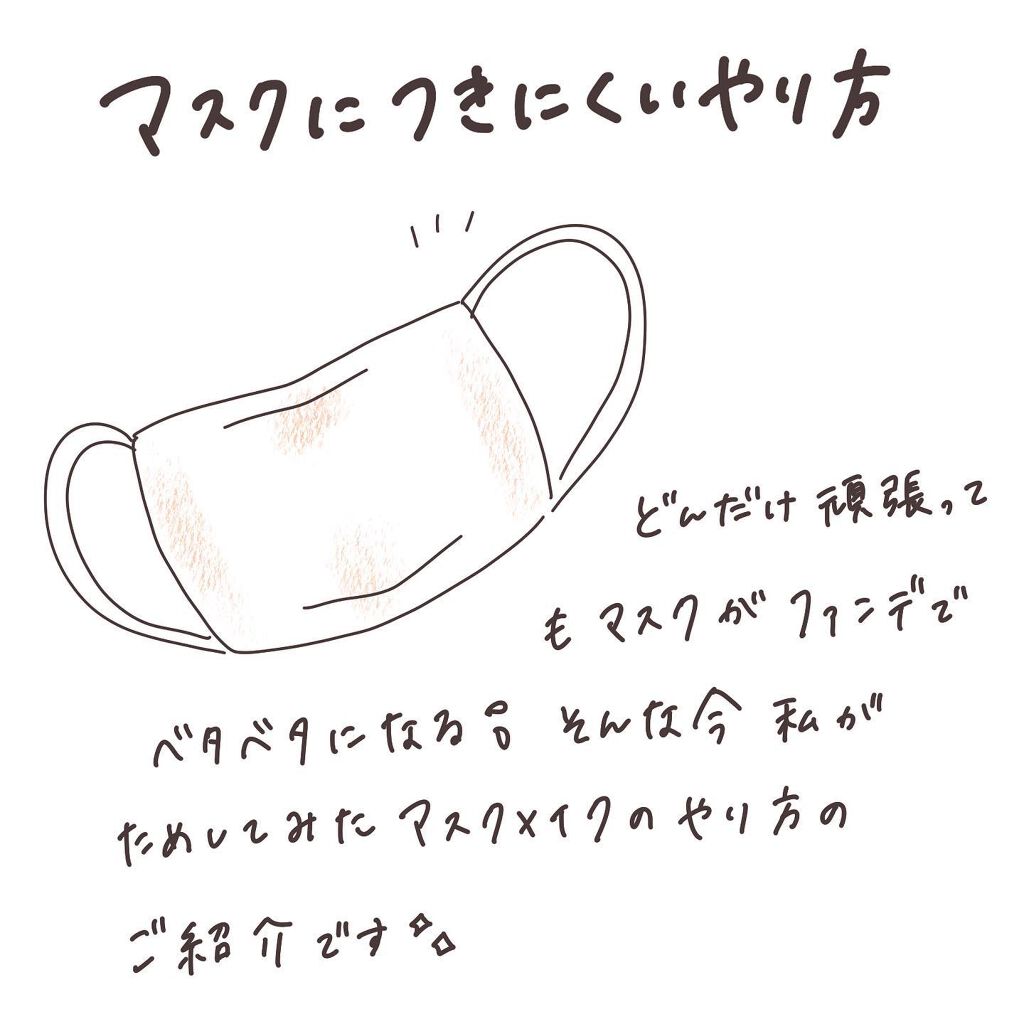 マスクにつきにくいやり方
どんだけ頑張って
もマスクがファンデで
ベタベタになる そんな今 私が
ためしてみたマスクメイクのやり方の
ご紹介です